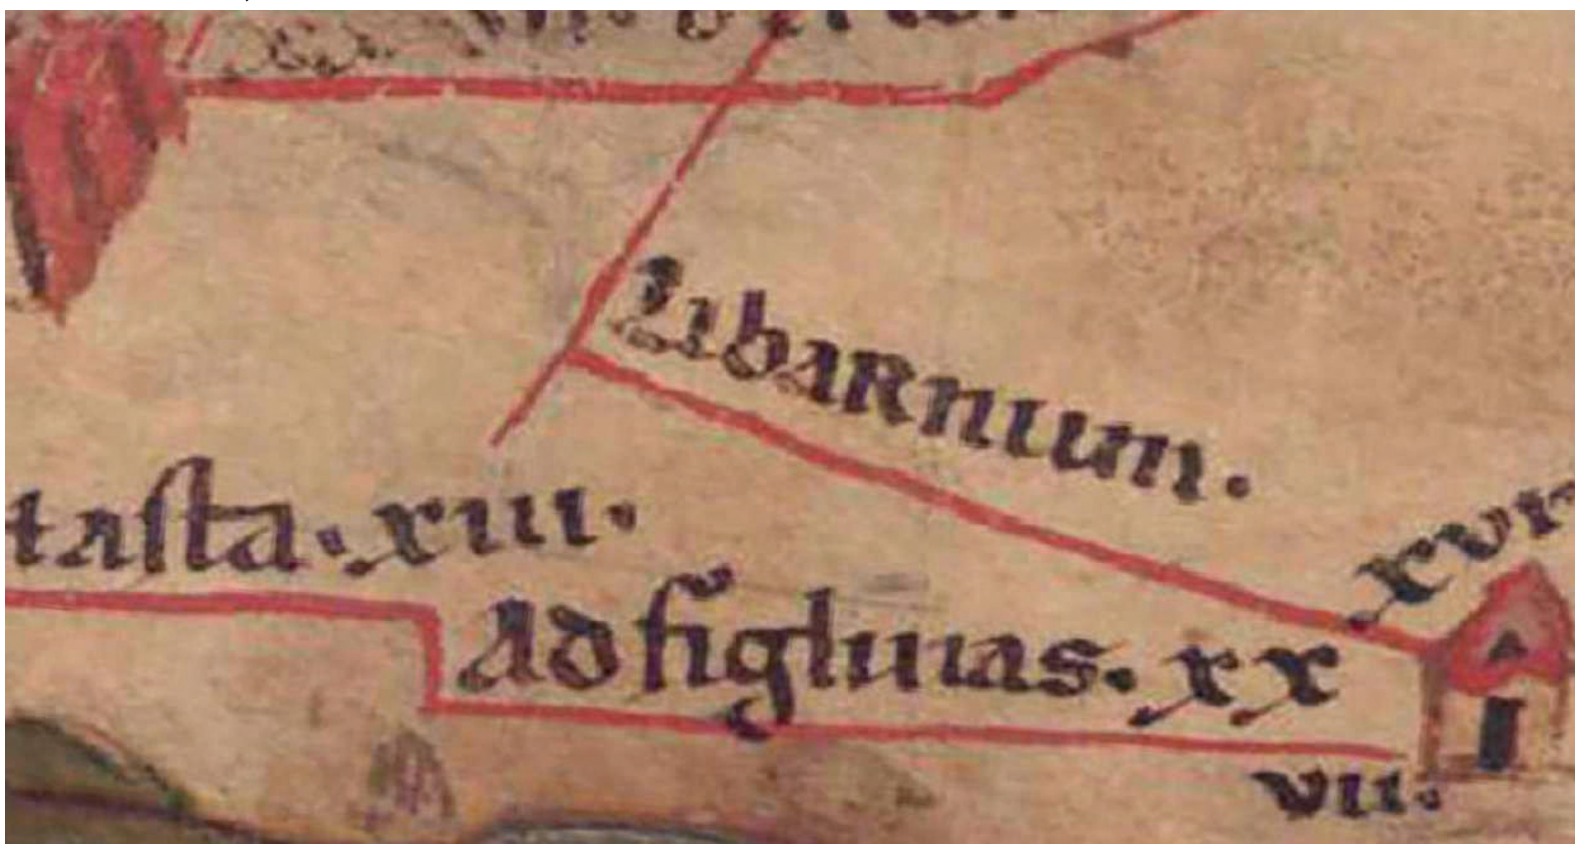 Libarnum.
xvi
tasta. xiii.
Ad figlinas. xx
vii.